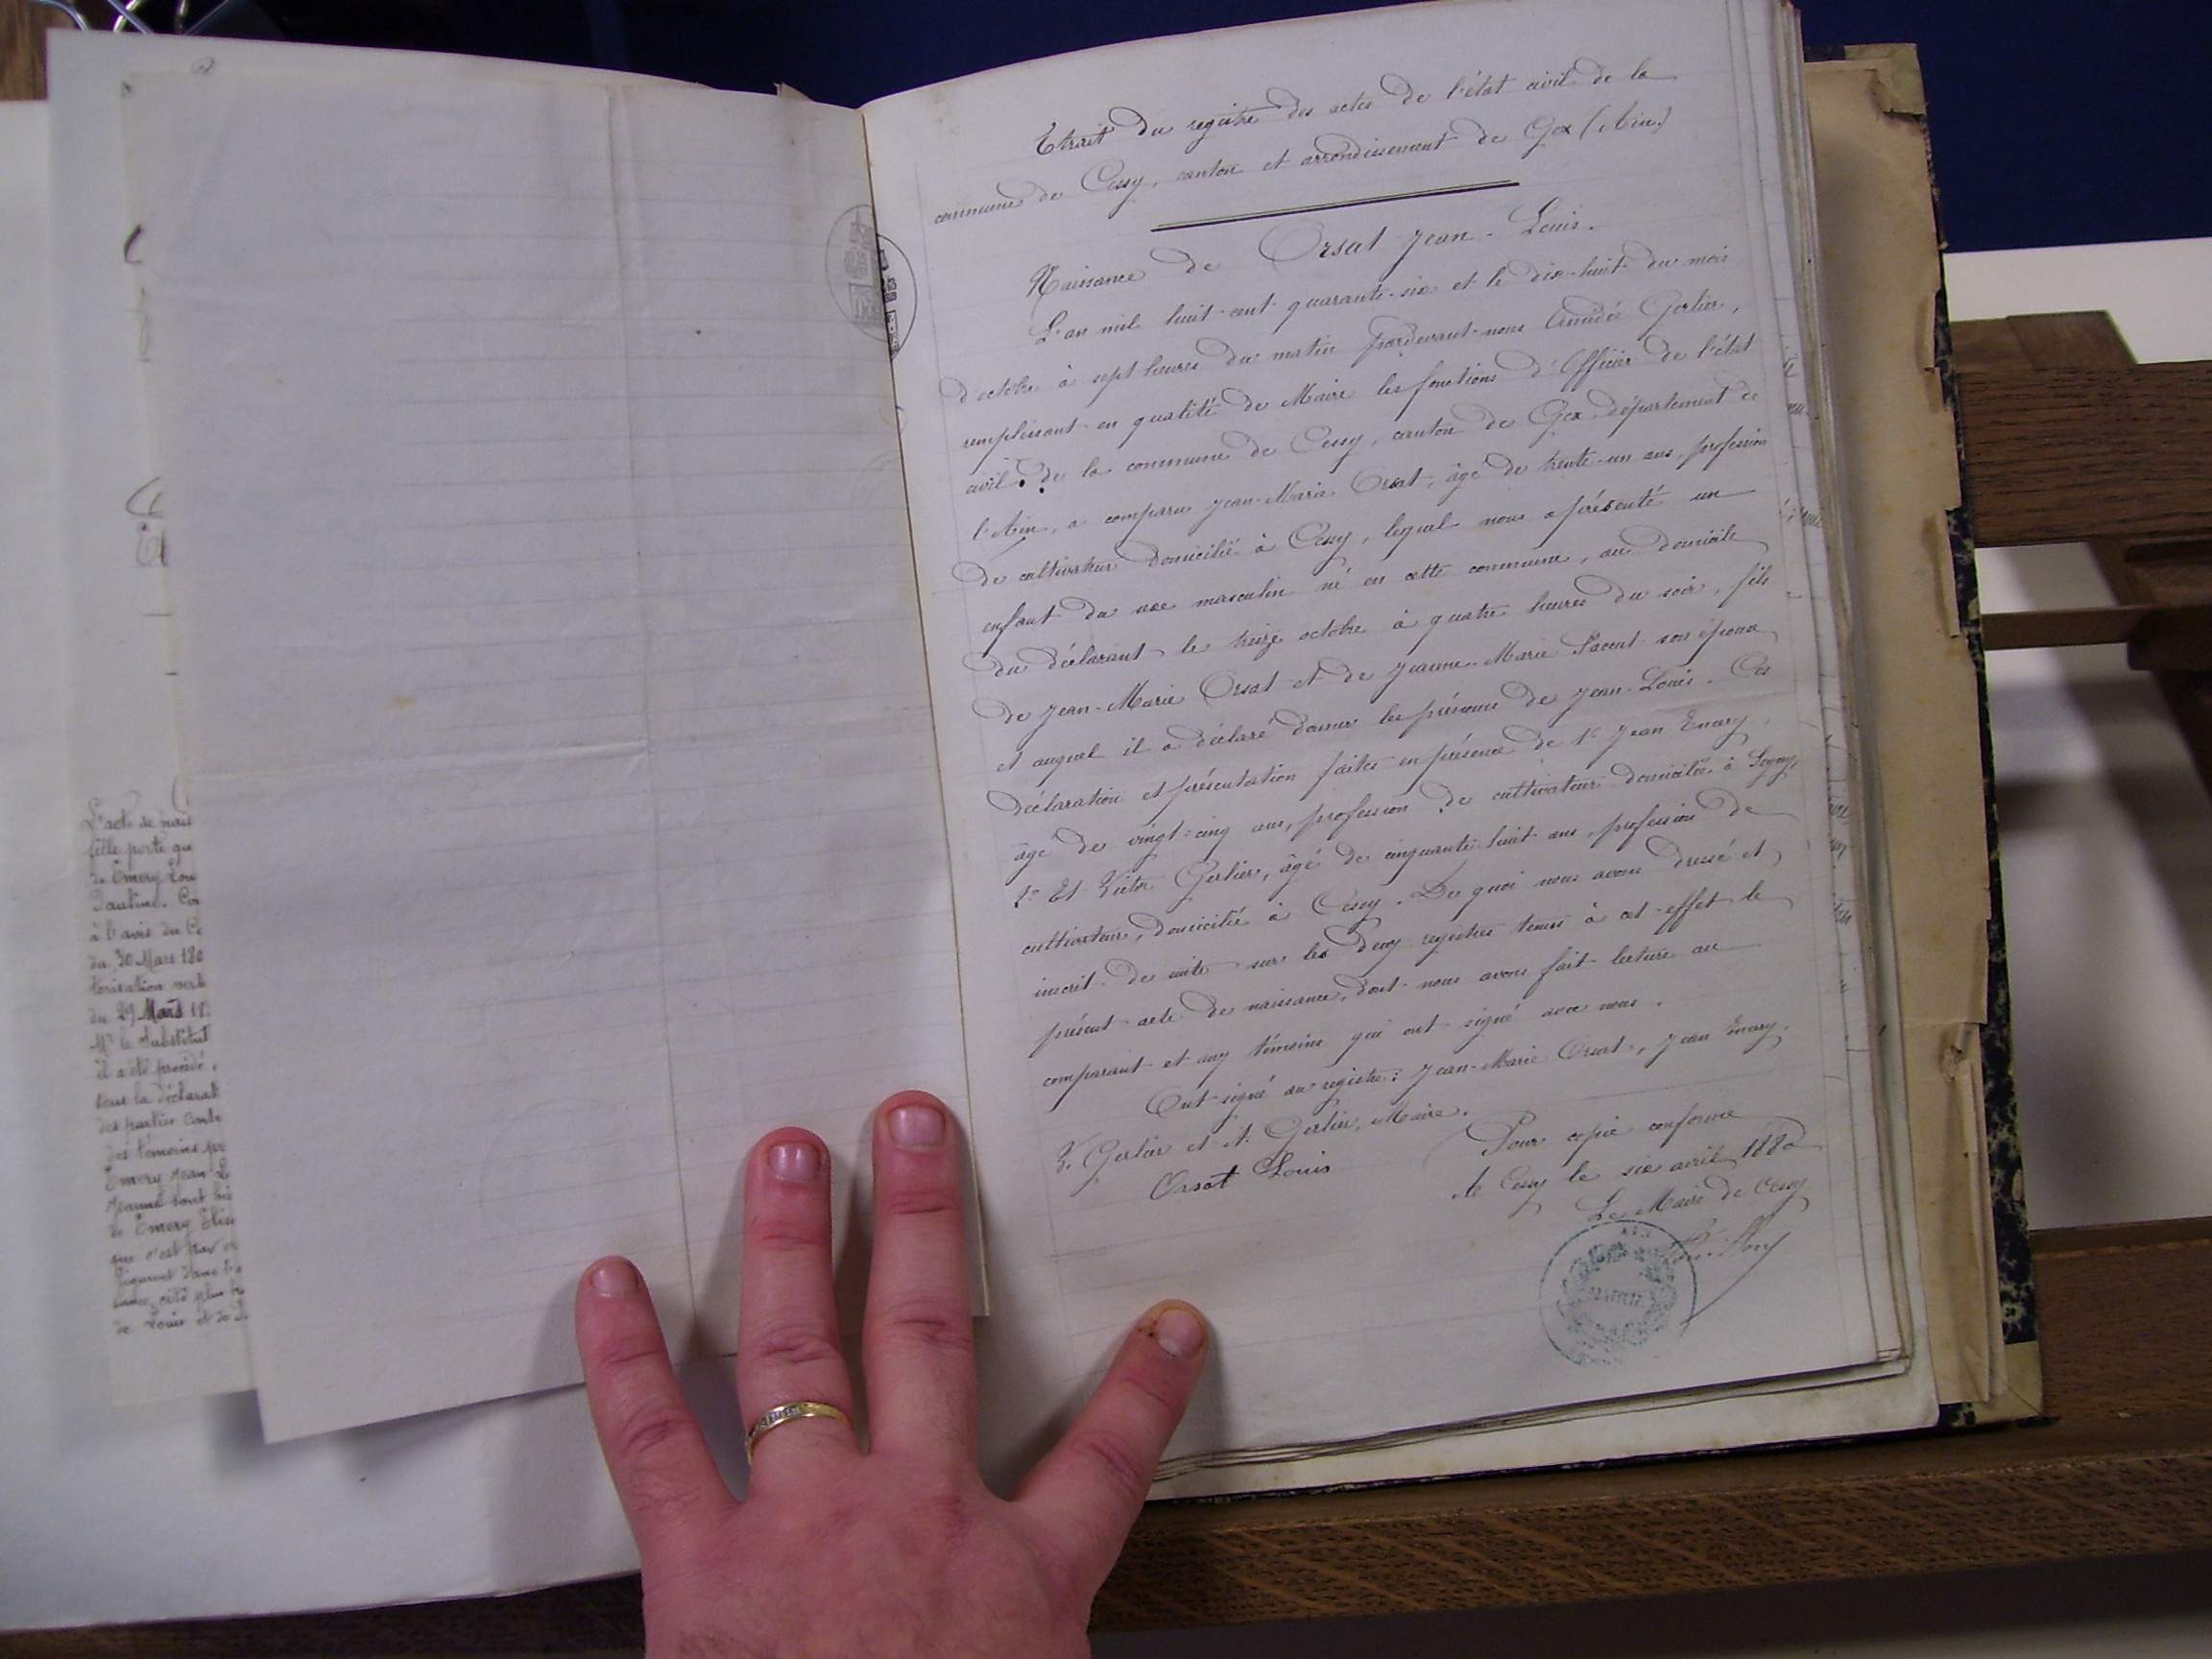 L'acte de nais
fille porte qu
de Emery Lou
Pauline. Con
à l'avis du Co
du 30 Mars 180
torisation verb
du 29 Mars 18
Mr le Substitut
il a été procédé,
sous la déclarati
des parties contr
des témoins
Emery Jean L
Jeanne
de Emery Elis
que c'est par er
figurent dans l'a
de Louis et de
Extrait du registre des actes de l'état civil de la
commune de Cessy, canton et arrondissement de Gex (Ain)
Naissance de Orsat Jean-Louis.
L'an mil huit-cent quarante-six et le dix-huit du mois
d'octobre à sept heures du matin pardevant-nous Amédée Gerlier,
remplissant en qualité de Maire les fonctions d'Officier de l'état
civil de la commune de Cessy, canton de Gex département de
l'Ain, a comparu Jean-Marie Orsat, âgé de trente-un ans, profession
de cultivateur domicilié à Cessy, lequel nous a présenté un
enfant du sexe masculin né en cette commune, au domicile
du déclarant le treize octobre à quatre heures du soir, fils
de Jean-Marie Orsat et de Jeanne-Marie son épouse
et auquel il a déclaré donner les prénoms de Jean-Louis. Ces
déclaration et présentation faites en présence de 1° Jean Emery,
âgé de vingt-cinq ans, profession de cultivateur domicilié à Segny,
2° Et Victor Gerlier, âgé de cinquante-huit ans, profession de
cultivateur, domicilié à Cessy. De quoi nous avons dressé et
inscrit de suite sur les deux registres tenus à cet effet le
présent acte de naissance, dont nous avons fait lecture au
comparant et aux témoins qui ont signé avec nous.
Ont signé au registre: Jean-Marie Orsat, Jean Emery,
V. Gerlier et A. Gerlier, Maire.
Pour copie conforme
Orsat Louis
à Cessy le six avril 1880
Le Maire de Cessy